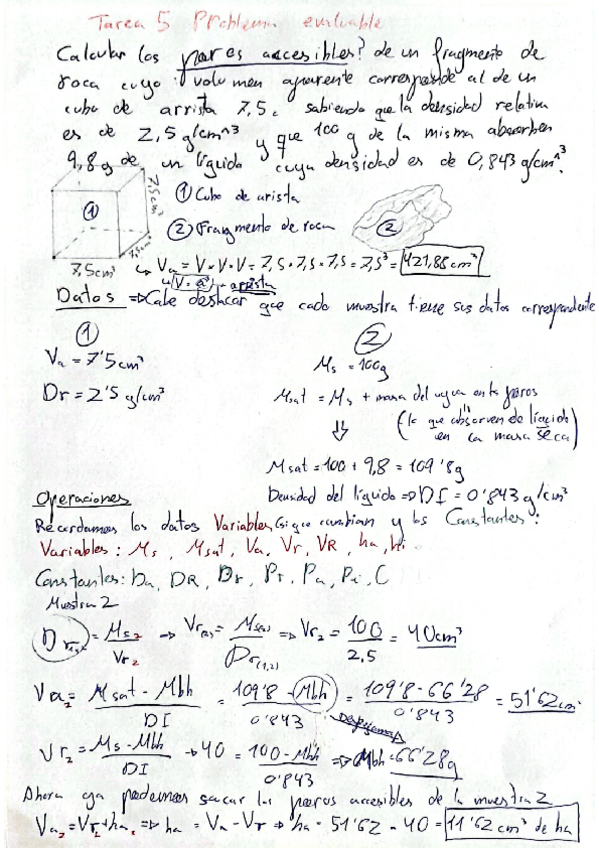 Tarea 5 Problema evaluable
Calcular los poros accesibles? de un fragmento de
roca cuyo volumen aparente corresponde al de un
cubo de arrista 7,5, sabiendo que la densidad relativa
es de 2,5 g/cm^3 y que 100 g de la misma absorben
9,8 g de un líquido cuya densidad es de 0,843 g/cm^3.
① Cubo de arista
② Fragmento de roca
① 7,5cm³ 7,5cm³ 7,5cm³ ②
↳ Va = V·V·V = 7,5·7,5·7,5 = 7,5³ = 421,88 cm³
↳ V = a³ → arrista
Datos ⇒ Cabe destacar que cada muestra tiene sus datos correspondientes
① ②
Va = 7'5cm³
Dr = 2'5 g/cm³
Ms = 100g
Msat = Ms + masa del agua en los poros
(lo que absorven de líquido
en la masa seca)
⇓
Msat = 100 + 9,8 = 109'8g
Densidad del líquido ⇒ DI = 0'843 g/cm³
Operaciones
Recordamos los datos Variables, si que cambian y los Constantes:
Variables: Ms, Msat, Va, Vr, VR, ha, hi
Constantes: Da, DR, Dr, Pr, Pa, Pi, C
Muestra 2
Dr₁,₂ = Ms₂/Vr₂ → Vr(2) = Ms(2)/Dr(1,2) ⇒ Vr₂ = 100/2,5 = 40cm³
Va₂ = Msat - Mbh/DI = 109'8 - Mbh/0'843 = 109'8 - 66'28/0'843 = 51'62 cm³
Despejamos
Vr₂ = Ms - Mbh/DI → 40 = 100 - Mbh/0'843 ⇒ Mbh = 66'28g
Ahora ya podemos sacar los poros accesibles de la muestra 2
Va₂ = Vr₂ + ha₂ ⇒ ha = Va - Vr ⇒ ha = 51'62 - 40 = 11'62 cm³ de ha